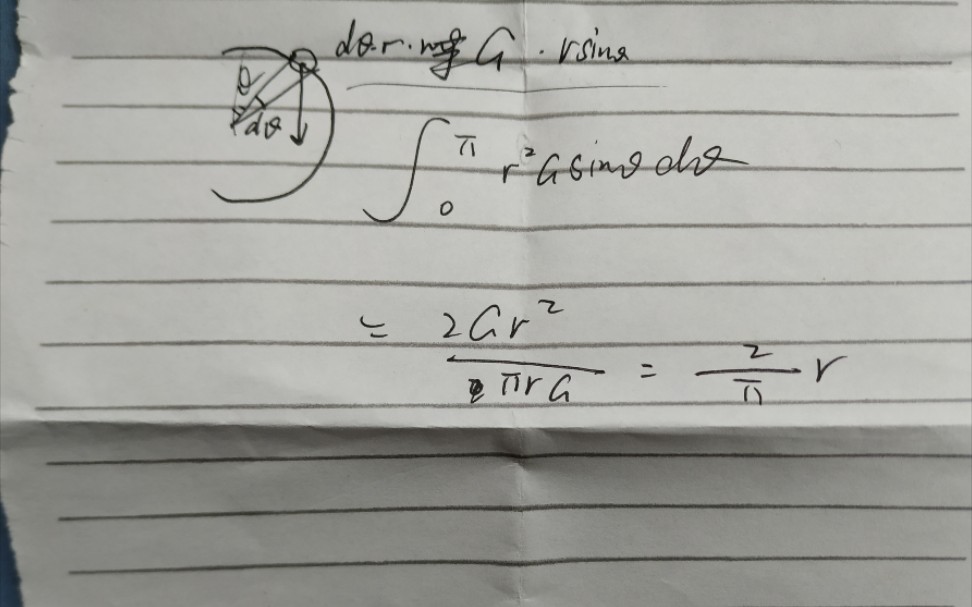 dθ·r· G · rsinθ
θ
dθ
∫₀^π r²G sinθ dθ
= 2Gr² / πrG = 2/π r